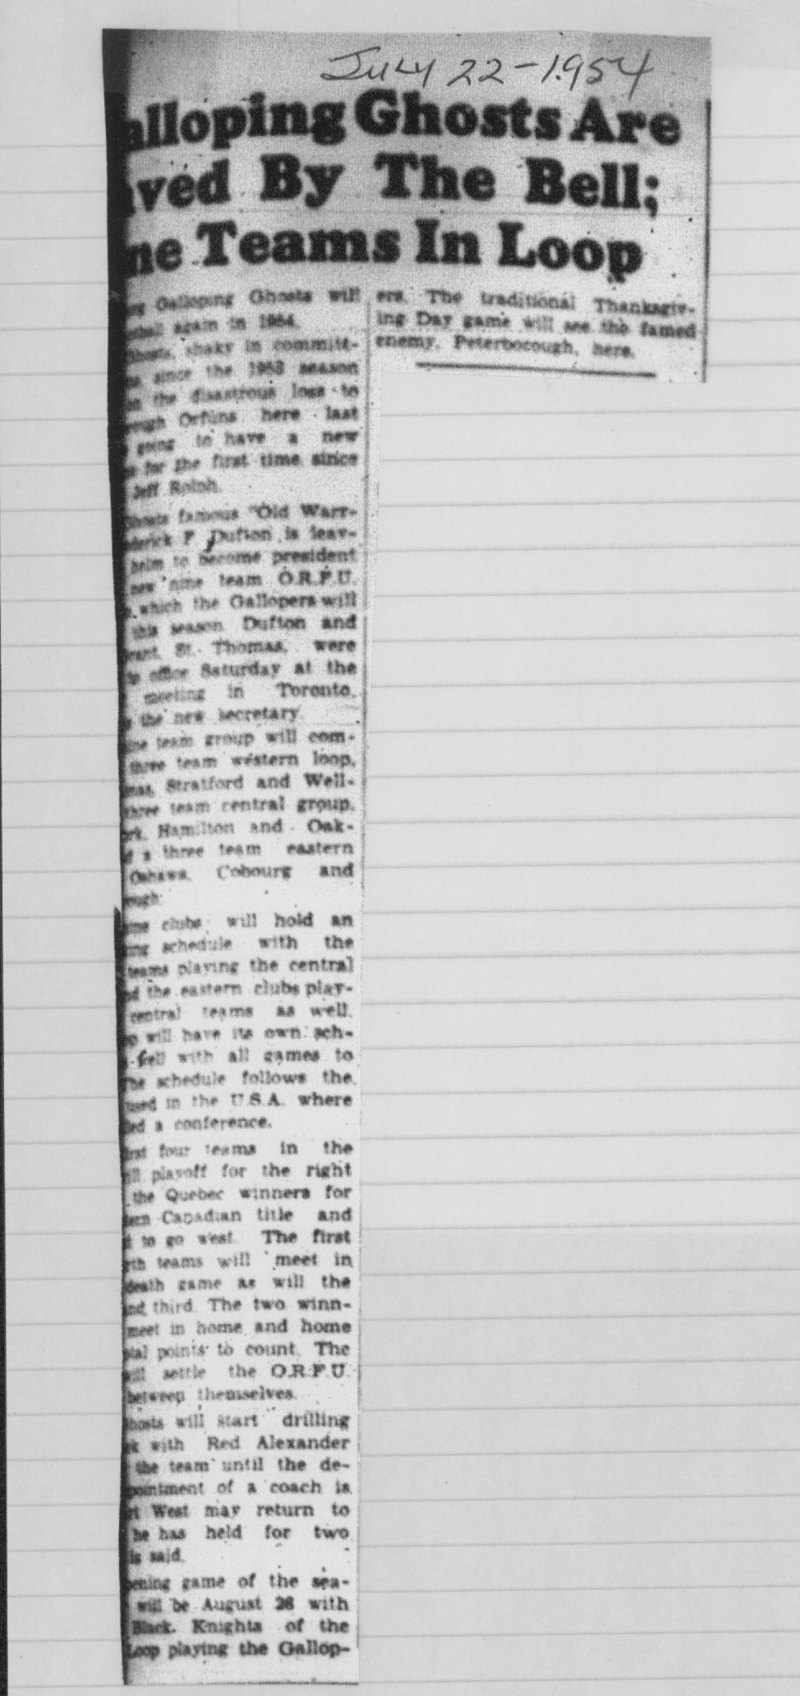 July 22-1954
alloping Ghosts Are
ved By The Bell;
ne Teams In Loop
Galloping Ghosts will
again in 1954.
Ghosts, shaky in committ-
since the 1953 season
the disastrous loss to
ough Orfuns here last
going to have a new
for the first time since
Jeff Rolph.
hosts famous "Old Warr-
derick F. Dufton is leav-
helm to become president
new nine team O.R.F.U.
which the Gallopers will
this season. Dufton and
rant, St. Thomas, were
to office Saturday at the
meeting in Toronto,
the new secretary.
ine team group will com-
three team western loop,
mas, Stratford and Well-
three team central group,
rk, Hamilton and Oak-
d a three team eastern
Oshawa, Cobourg and
ough.
ine clubs will hold an
ing schedule with the
teams playing the central
nd the eastern clubs play-
central teams as well.
p will have its own sch-
well with all games to
The schedule follows the
used in the U.S.A. where
led a conference.
irst four teams in the
ill playoff for the right
the Quebec winners for
tern Canadian title and
t to go west. The first
rth teams will meet in
death game as will the
nd third. The two winn-
meet in home and home
tal points to count. The
will settle the O.R.F.U.
between themselves.
hosts will start drilling
k with Red Alexander
the team until the de-
pointment of a coach is
rt West may return to
he has held for two
is said.
pening game of the sea-
will be August 28 with
Black Knights of the
Loop playing the Gallop-
ers. The traditional Thanksgiv-
ing Day game will see the famed
enemy, Peterborough, here.